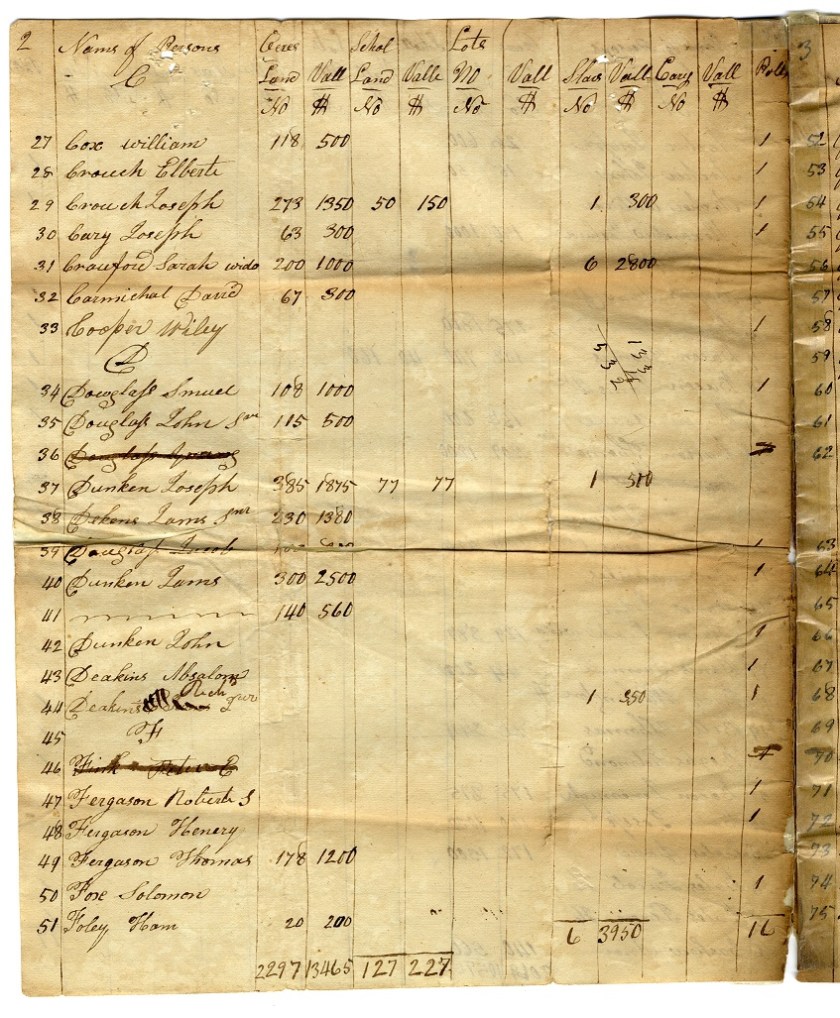 2 Nams of Persons Acres Schol Lots
C Land Vall Land Valle No Vall Slavs Vall Cary Vall Poles
No $ No $ No $ No $ No $
27 Cox William 118 500 1
28 Crouch Elberte 1
29 Crouch Joseph 273 1350 50 150 1 300 1
30 Cary Joseph 63 300 1
31 Crawford Sarah wido 200 1000 6 2800
32 Carmichal David 67 300
33 Cooper Wiley 1
D
34 Dowglass Smuel 108 1000 1
35 Douglass John Snr 115 500
36 Douglass
37 Dunken Joseph 385 1875 77 77 1 500
38 Dekens Jams Snr 230 1380
39 Douglass Jacob 1
40 Dunken Jams 300 2500 1
41 140 560
42 Dunken John 1
43 Deakins Absalom 1
44 Deakins Rich Jur 1 350 1
45 F
46 Fink
47 Fergason Roberte S 1
48 Fergason Henery 1
49 Fergason Thomas 178 1200
50 Fox Solomon 1
51 Foley Ham 20 200
6 3950 16
2297 13465 127 227
3
52
53
54
55
56
57
58
59
60
61
62
63
64
65
66
67
68
69
70
71
72
73
74
75